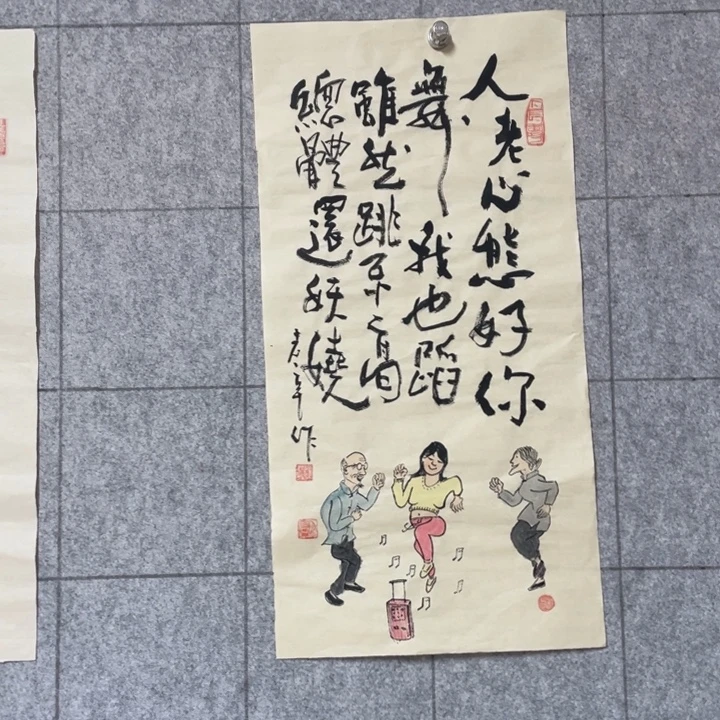 人老心態好你
舞、我也蹈
雖然跳
總體還妖嬈
作